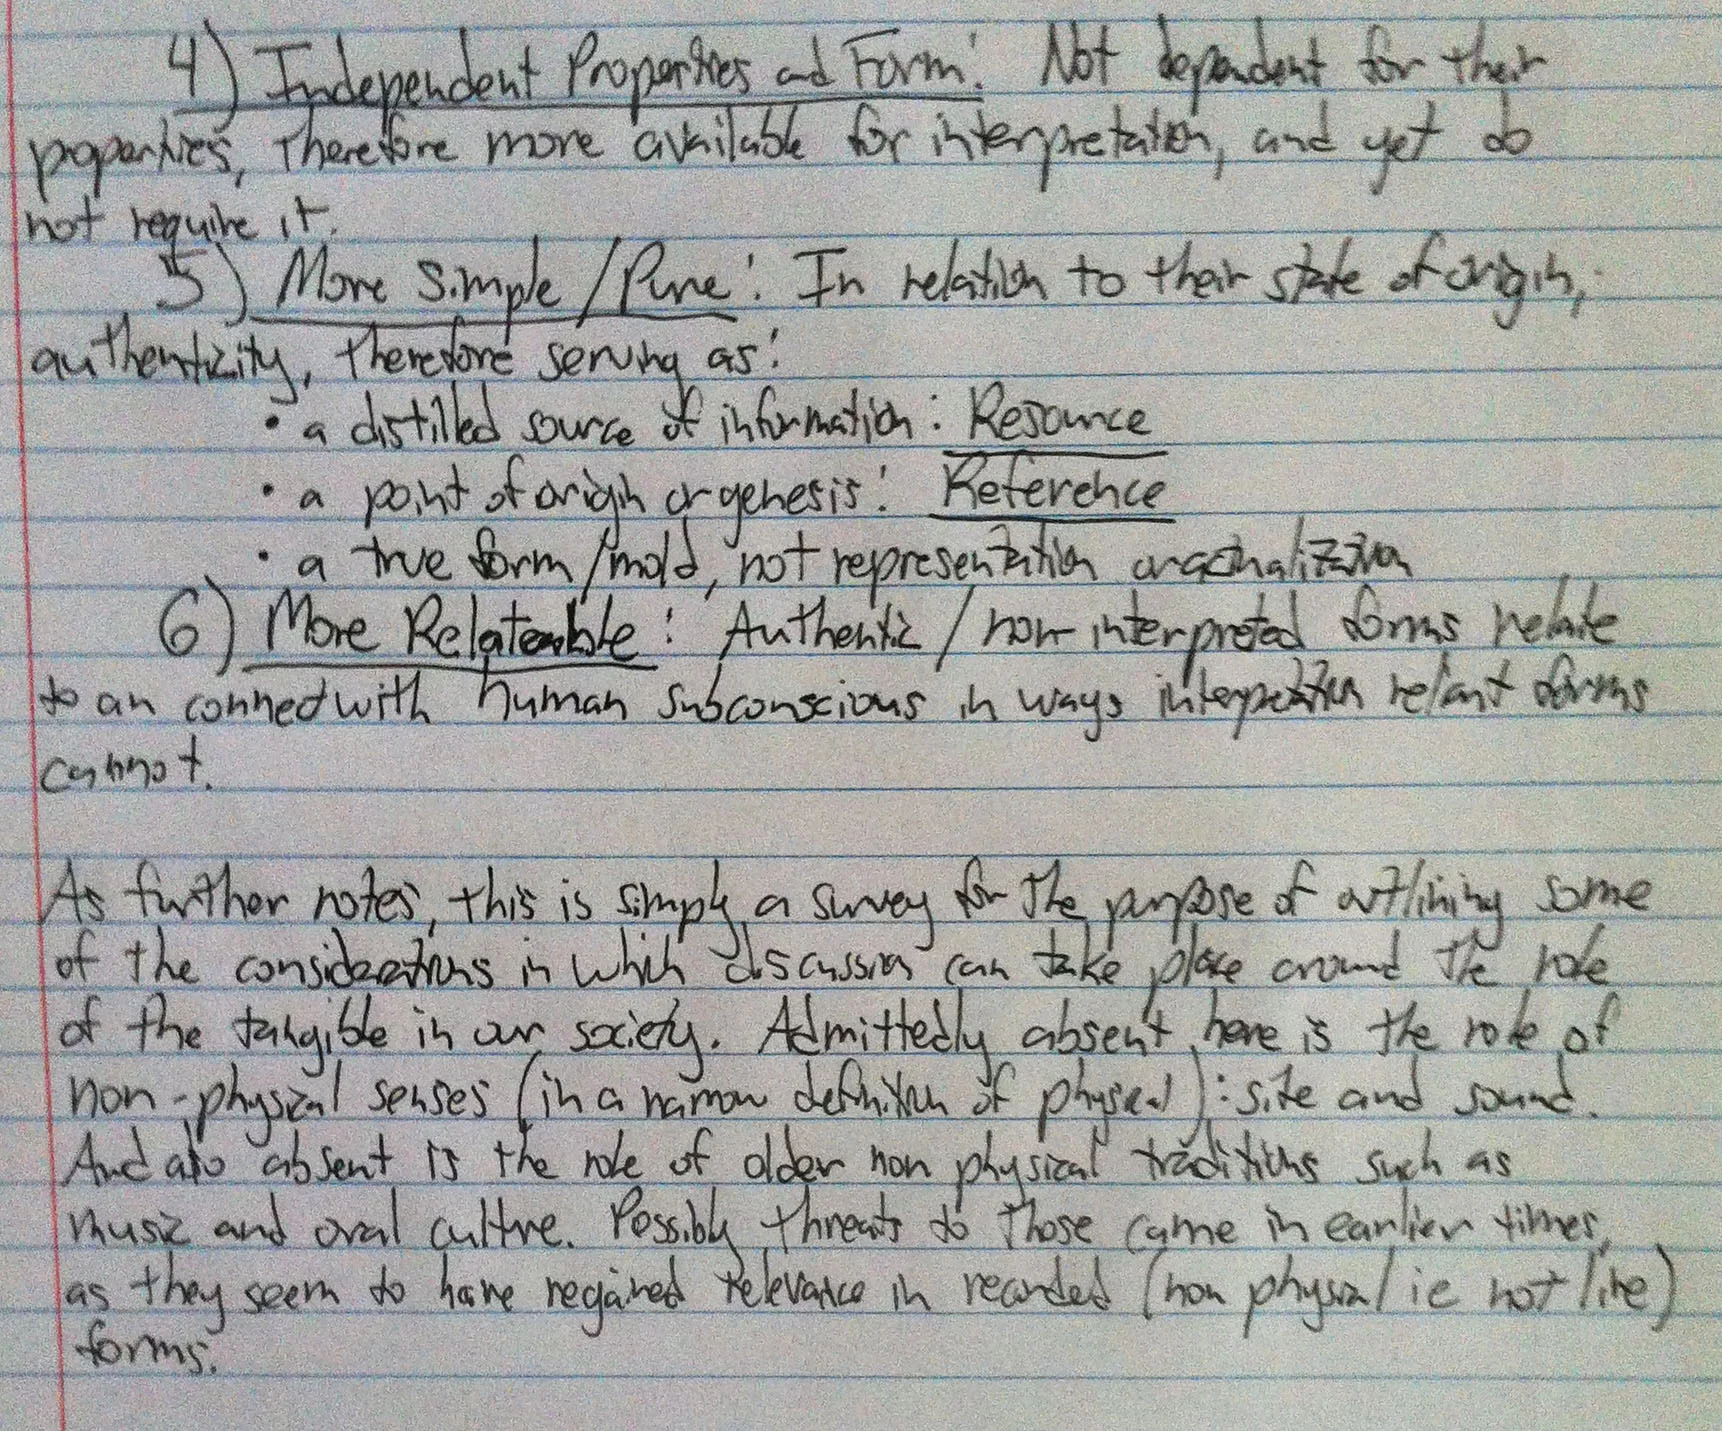 4) Independent Properties and Form: Not dependent for their
poperties, therefore more available for interpretation, and yet do
not require it.
5) More Simple / Pure: In relation to their state of origin,
authenticity, therefore serving as:
• a distilled source of information: Resource
• a point of origin or genesis: Reference
• a true form/mold, not representation or
6) More Relateable: Authentic / non-interpreted forms relate
to an connect with human subconscious in ways interpretation reliant forms
cannot.
As further notes, this is simply a survey for the purpose of outlining some
of the considerations in which discussion can take place around the role
of the tangible in our society. Admittedly absent here is the role of
non-physical senses (in a narrow definition of physical): site and sound.
And also absent is the role of older non physical traditions such as
music and oral culture. Possibly threats to those came in earlier times,
as they seem to have regained relevance in recorded (non physical ie not live)
forms.